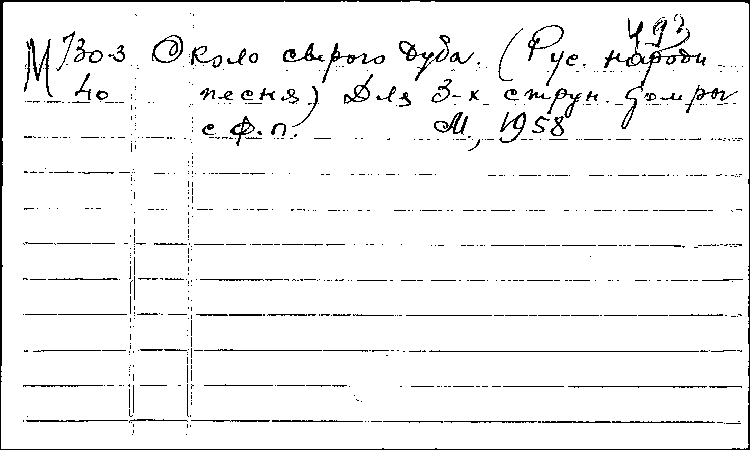 493
М 730-3 Около сырого дуба. (Рус. народн
40 песня) Для 3-х струн. домры
с ф.п. М., 1958